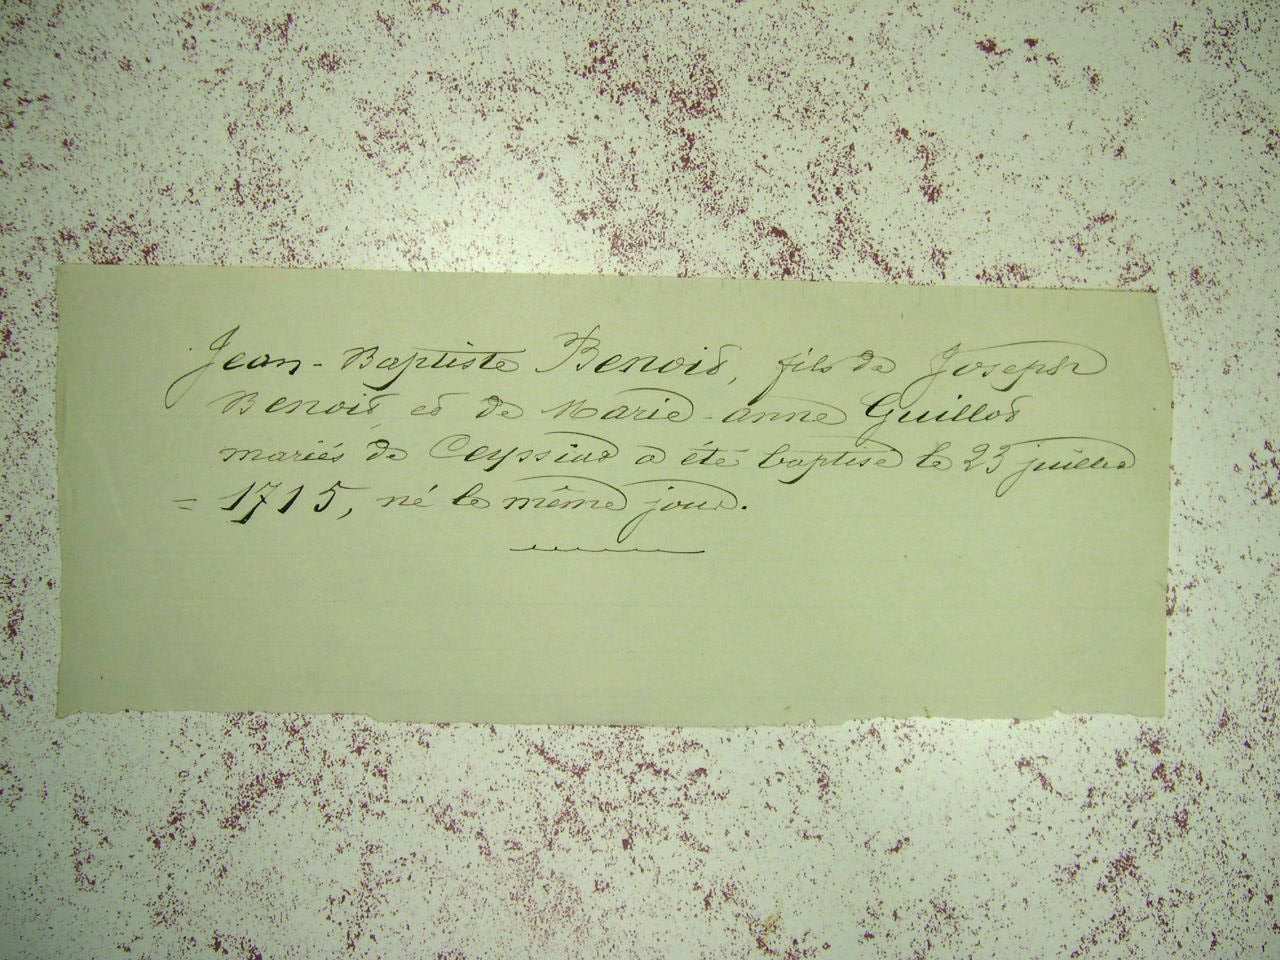 Jean-Baptiste Benoit, fils de Joseph
Benoit et de Marie-anne Guillot
mariés de Ceyssiat a été baptisé le 23 juillet
= 1715, né le même jour.